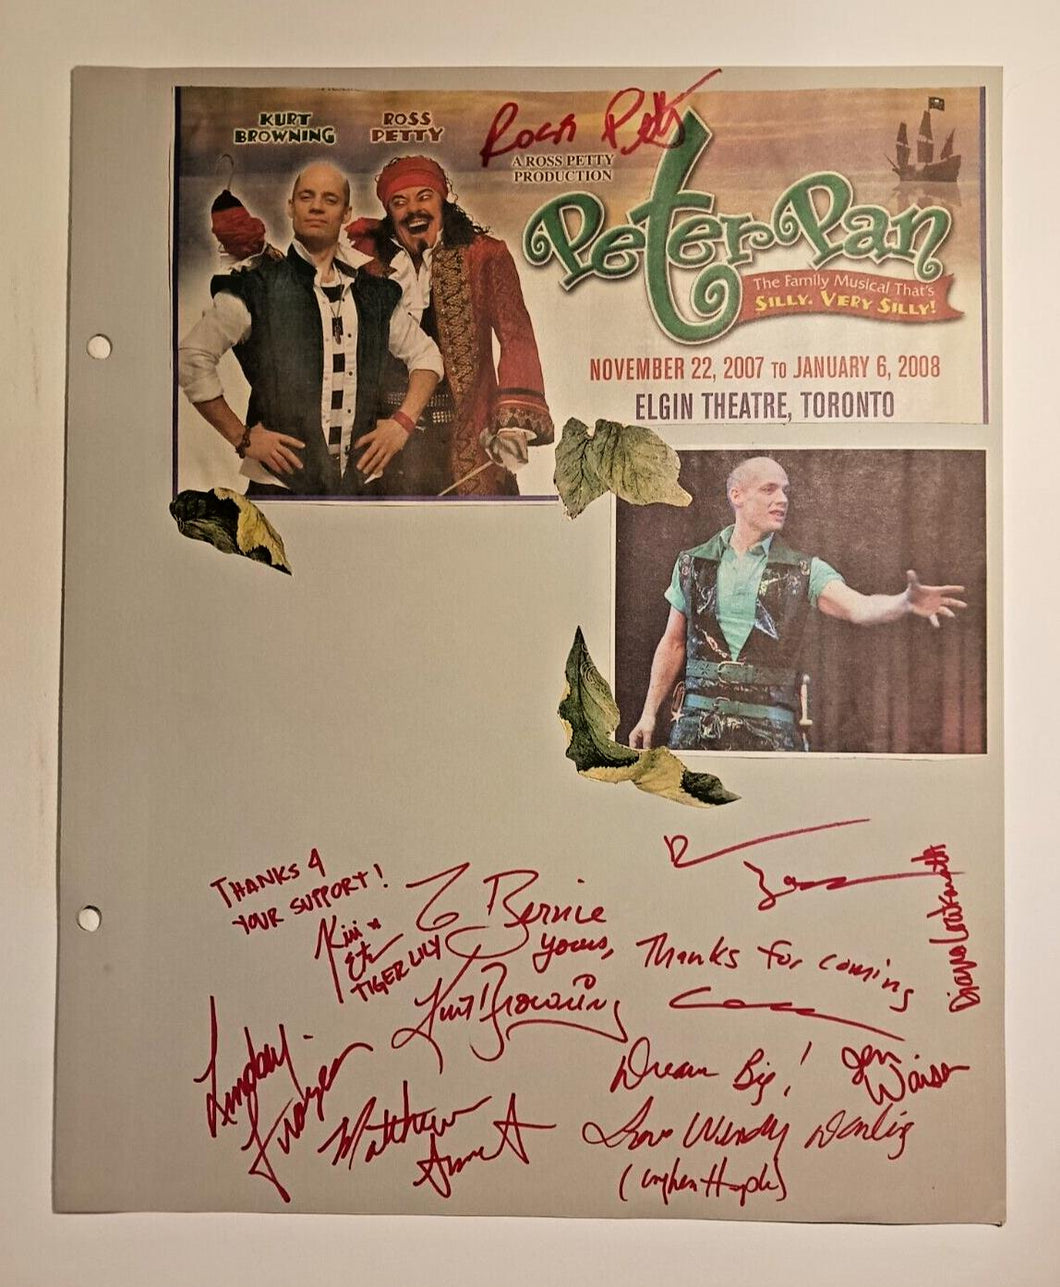 KURT
BROWNING
ROSS
PETTY
Ross Petty
A ROSS PETTY
PRODUCTION
Peter Pan
The Family Musical That's
SILLY. VERY SILLY!
NOVEMBER 22, 2007 TO JANUARY 6, 2008
ELGIN THEATRE, TORONTO
THANKS 4
YOUR SUPPORT!
TIGER LILY
To Bernie
yours,
Kurt Browning
Thanks for coming
Lindsay
Frazer
Matthew
Dream Big!
Jen
Love Wendy Darling